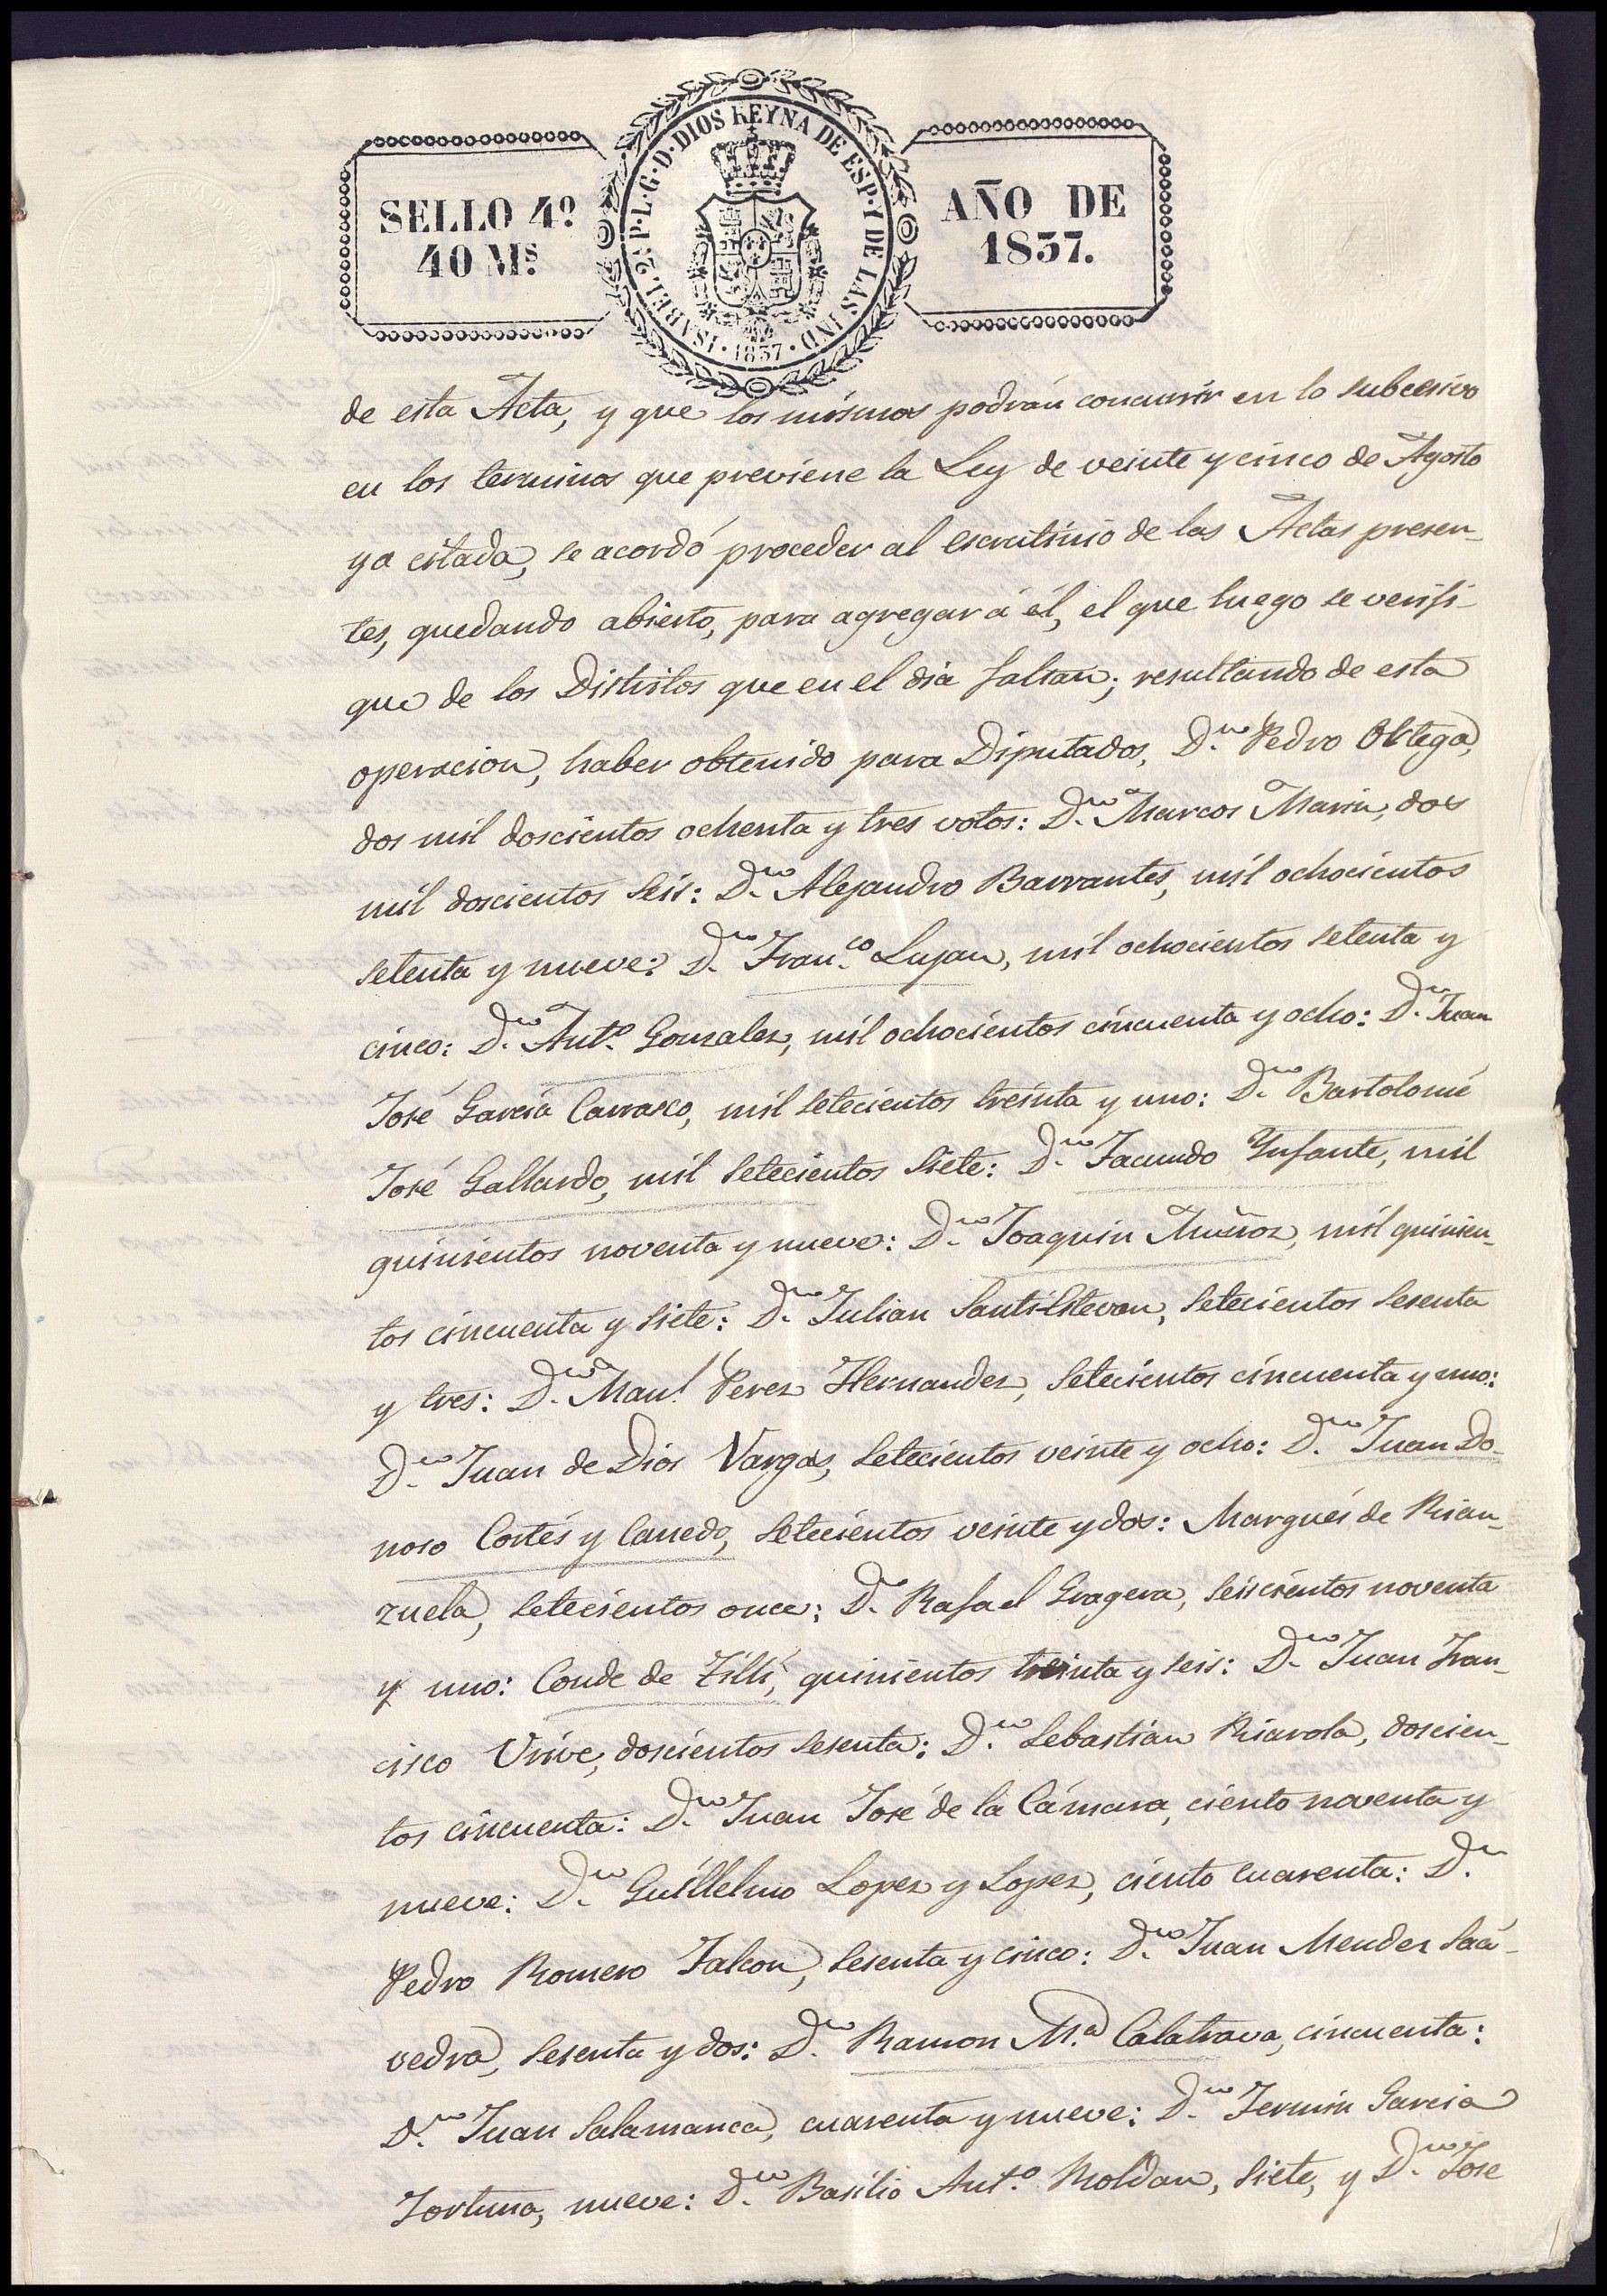 SELLO 4º
40 Mˢ.
ISABEL.2ª.P.L.G.D.DIOS REYNA DE ESP.Y DE LAS IND
· 1837 ·
AÑO DE
1837.
de esta Acta, y que los mismos podrán concurrir en lo subcesivo
en los terminos que previene la Ley de veinte y cinco de Agosto
ya citada, se acordó proceder al escrutinio de las Actas presen-
tes, quedando abierto, para agregar á él, el que luego se verifi-
que de los Distritos que en el dia faltan; resultando de esta
operacion, haber obtenido para Diputados, Dⁿ. Pedro Ortega,
dos mil doscientos ochenta y tres votos: Dⁿ. Marcos Marin, dos
mil doscientos seis: Dⁿ. Alejandro Barrantes, mil ochocientos
setenta y nueve: Dⁿ. Franᶜᵒ. Lujan, mil ochocientos setenta y
cinco: Dⁿ. Antº. Gonzalez, mil ochocientos cincuenta y ocho: Dⁿ. Juan
José Garcia Carrasco, mil setecientos treinta y uno: Dⁿ. Bartolomé
José Gallardo, mil setecientos siete: Dⁿ. Facundo Ynfante, mil
quinientos noventa y nueve: Dⁿ. Joaquin Muñoz, mil quinien-
tos cincuenta y siete: Dⁿ. Julian Santistevan, setecientos sesenta
y tres: Dⁿ. Manˡ. Perez Hernandez, setecientos cincuenta y uno:
Dⁿ. Juan de Dios Vargas, setecientos veinte y ocho: Dⁿ. Juan Do-
noso Cortés y Canedo, setecientos veinte y dos: Marqués de Rian-
zuela, setecientos once: Dⁿ. Rafael Gragera, seiscientos noventa
y uno: Conde de Tilli, quinientos treinta y seis: Dⁿ. Juan Fran-
cisco Urive, doscientos sesenta: Dⁿ. Sebastian Riarola, doscien-
tos cincuenta: Dⁿ. Juan José de la Cámara, ciento noventa y
nueve: Dⁿ. Guillelmo Lopez y Lopez, ciento cuarenta: Dⁿ.
Pedro Romero Falcon, sesenta y cinco: Dⁿ. Juan Mendez Saa-
vedra, sesenta y dos: Dⁿ. Ramon Mª. Calatrava, cincuenta:
Dⁿ. Juan Salamanca, cuarenta y nueve: Dⁿ. Fermin Garcia
Fortuna, nueve: Dⁿ. Basilio Antº. Roldan, siete, y Dⁿ. Jose